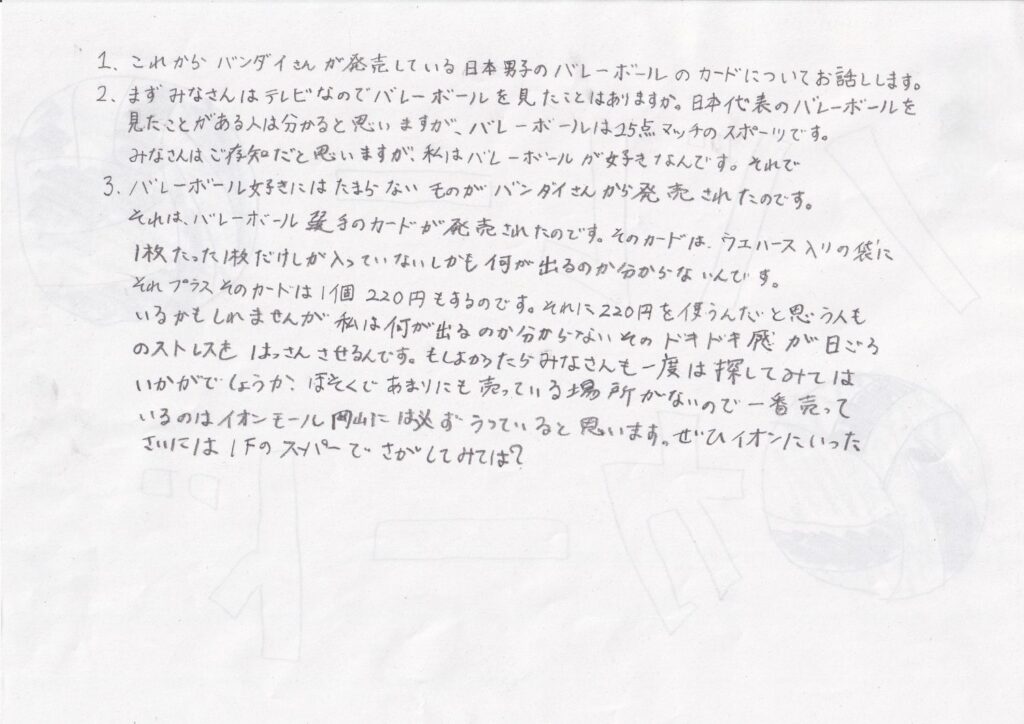 1、これから バンダイさんが発売している日本男子のバレーボールのカードについてお話しします。
2、まずみなさんはテレビなのでバレーボールを見たことはありますか。日本代表のバレーボールを
見たことがある人は分かると思いますが、バレーボールは25点マッチのスポーツです。
みなさんはご存知だと思いますが、私はバレーボールが好きなんです。それで
3、バレーボール好きにはたまらないものがバンダイさんから発売されたのです。
それは、バレーボール選手のカードが発売されたのです。そのカードは、ウエハース入りの袋に
1枚たった1枚だけしか入っていないしかも何が出るのか分からないんです。
それプラスそのカードは1個220円もするのです。それに220円を使うんだと思う人も
いるかもしれませんが私は何が出るのか分からないそのドキドキ感が日ごろ
のストレスを はっさんさせるんです。もしよかったらみなさんも一度は探してみては
いかがでしょうか、ほそくであまりにも売っている場所がないので一番売って
いるのはイオンモール岡山には必ずうっていると思います。ぜひイオンにいった
さいには1Fのスーパーでさがしてみては?